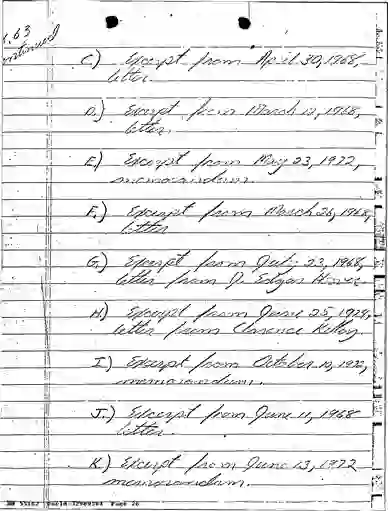 1.63
continued
C.) Excerpt from April 30, 1968,
letter.
D.) Excerpt from March 12, 1968,
letter.
E.) Excerpt from May 23, 1972,
memorandum.
F.) Excerpt from March 26, 1968,
letter
G.) Excerpt from July 23, 1968,
letter from J. Edgar Hoover.
H.) Excerpt from June 25, 1974,
letter from Clarence Kelley.
I.) Excerpt from October 10, 1972,
memorandum.
J.) Excerpt from June 11, 1968
letter.
K.) Excerpt from June 13, 1972
memorandum.
Page 26